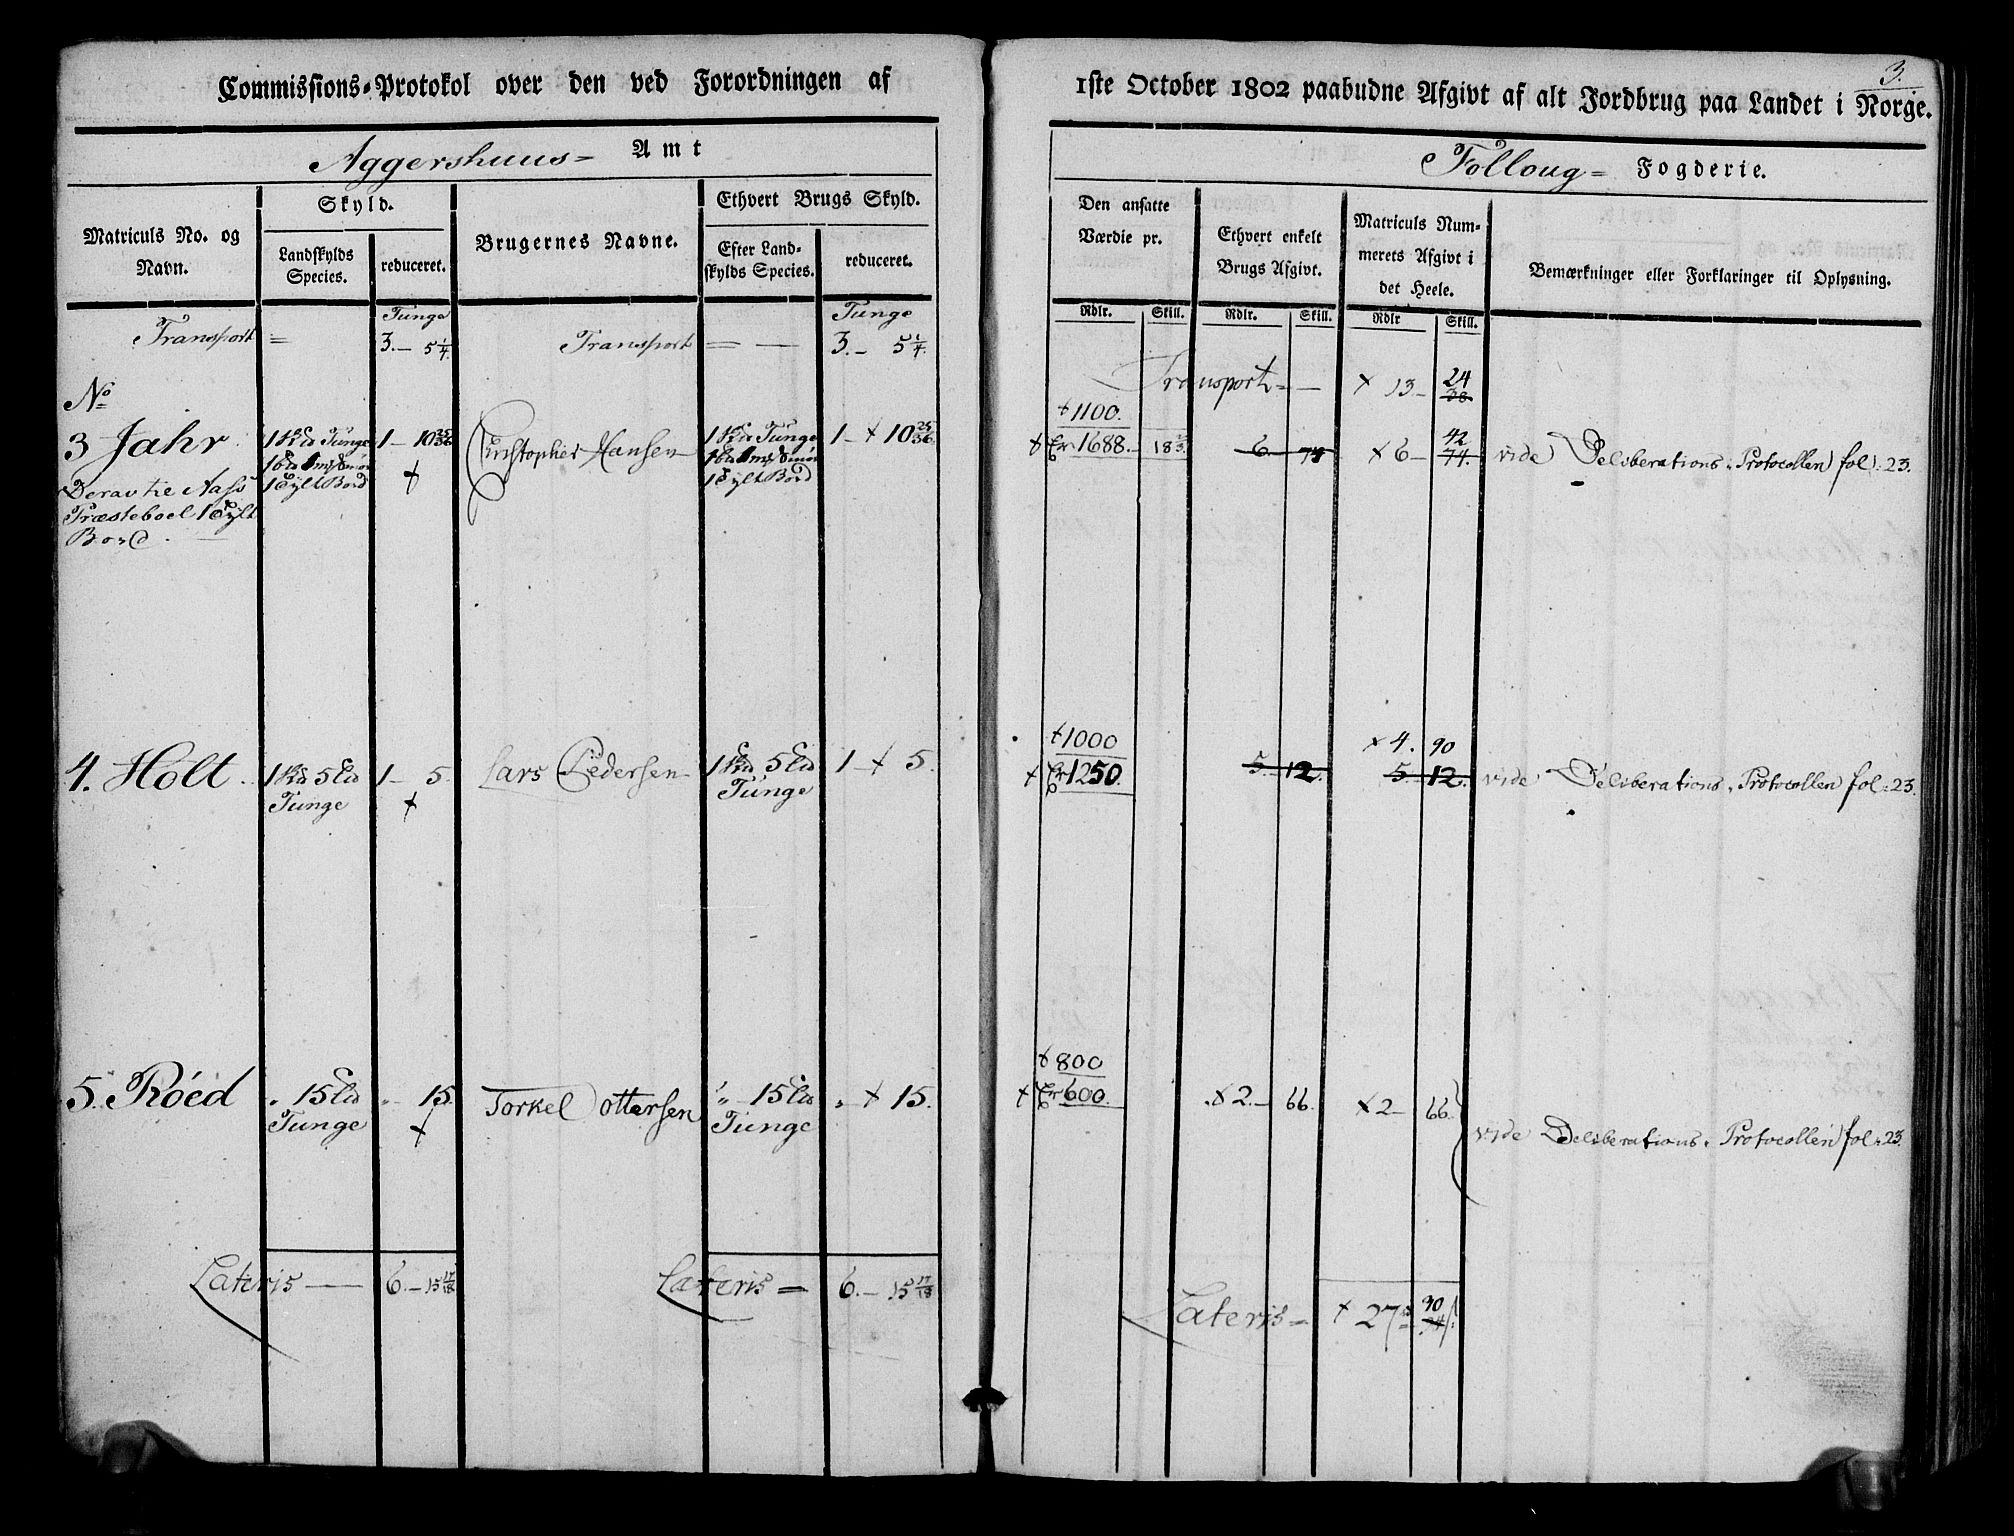 Commissions-Protokol over den ved Forordningen af
1ste October 1802 paabudne Afgivt af alt Jordbrug paa Landet i Norge.
3.
Aggershuus= Amt
Folloug= Fogderie.
Matriculs No. og Navn.
Skyld.
Landskylds Species.
reduceret.
Brugernes Navne.
Ethvert Brugs Skyld.
Efter Landskylds Species.
reduceret.
Den ansatte Værdie pr.
Ethvert enkelt Brugs Afgivt.
Matriculs Nummerets Afgivt i det Heele.
Bemærkninger eller Forklaringer til Oplysning.
Rdlr. Skill. Rdlr. Skill. Rdlr Skill.
Tunge Tunge
Transport = 3.- 5 1/4. Transport = — 3.- 5 1/4.
Transport= — + 13- 24
38
No
+1100.
3 Jahr 1 Tunge 1- 10 25/36 Christopher Hansen 1 Tunge 1- + 10 25/36.
+ 1688.- 18 6- 74 + 6- 42
74. vide Deliberations-Protocollen fol: 23.
1 Tylt Bord + 1 Tylt Bord
Derav til Aass
Præsteboel 1 Tylt
Bord.
+1000 + 4. 90
4. Holt 1 5 1- 5. Lars Pedersen 1 5 1 + 5.
+ 1250. 5.- 12. 5. 12. vide Deliberations-Protocollen fol: 23.
Tunge + Tunge
+800
5. Röed " 15 " 15. Torkel Ottersen " 15 " + 15.
+ 600. + 2.- 66. + 2- 66.
Tunge + Tunge
vide Deliberations-Protocollen fol: 23.
Lateris — 6.- 15 17/18 Lateris = 6.- 15 17/18
Lateris= + 27 30